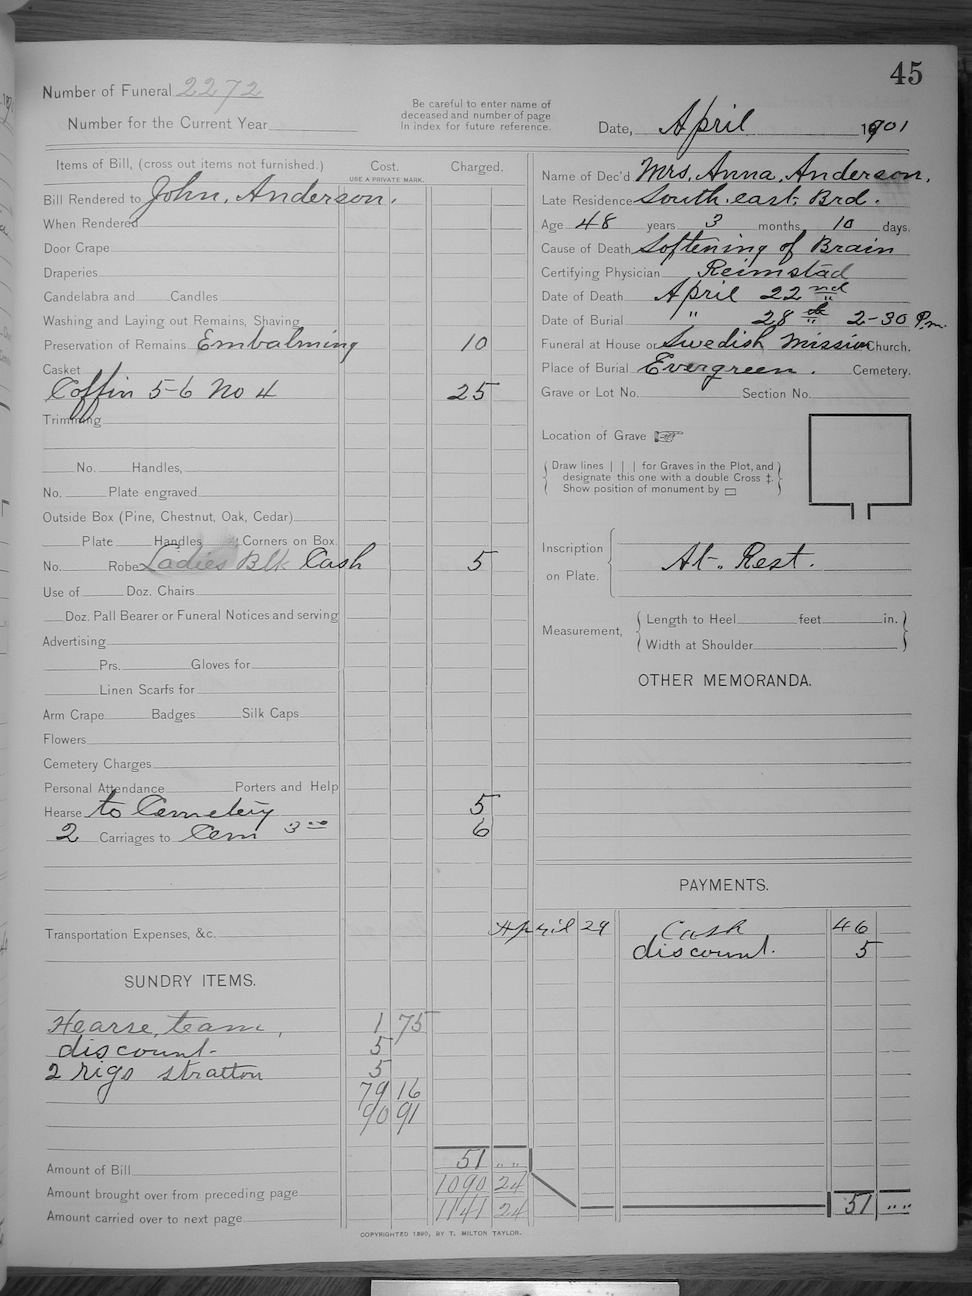 45
Number of Funeral 2272
Number for the Current Year
Be careful to enter name of
deceased and number of page
In index for future reference.
Date, April 1901
Items of Bill, (cross out items not furnished.) Cost. Charged.
USE A PRIVATE MARK.
Bill Rendered to John. Anderson.
When Rendered
Door Crape
Draperies
Candelabra and Candles
Washing and Laying out Remains, Shaving
Preservation of Remains Embalming 10
Casket
Coffin 5-6 No 4 25
Trimming
No. Handles,
No. Plate engraved
Outside Box (Pine, Chestnut, Oak, Cedar)
Plate Handles Corners on Box.
No. Robe Ladies Blk Cash 5
Use of Doz. Chairs
Doz. Pall Bearer or Funeral Notices and serving
Advertising
Prs. Gloves for
Linen Scarfs for
Arm Crape Badges Silk Caps
Flowers
Cemetery Charges
Personal Attendance Porters and Help
Hearse to Cemetery 5
2 Carriages to Cem 3 00 6
Transportation Expenses, &c.
SUNDRY ITEMS.
Hearse, team, 1 75
discount- 5
2 rigs stratton 5
79 16
90 91
Amount of Bill 51 " "
Amount brought over from preceding page 1090 24
Amount carried over to next page 1141 24
Name of Dec'd Mrs. Anna. Anderson.
Late Residence South. east. Brd.
Age 48 years 3 months 10 days.
Cause of Death Softening of Brain
Certifying Physician Reimstad
Date of Death April 22nd
Date of Burial " 28th 2-30 P.m.
Funeral at House or Swedish Mission Church.
Place of Burial Evergreen. Cemetery.
Grave or Lot No. Section No.
Location of Grave ☞
Draw lines | | | for Graves in the Plot, and
designate this one with a double Cross ‡.
Show position of monument by ▭
Inscription
on Plate.
At. Rest.
Measurement,
Length to Heel feet in.
Width at Shoulder
OTHER MEMORANDA.
PAYMENTS.
April 29 Cash 46
discount. 5
51 " "
COPYRIGHTED 1890, BY T. MILTON TAYLOR.